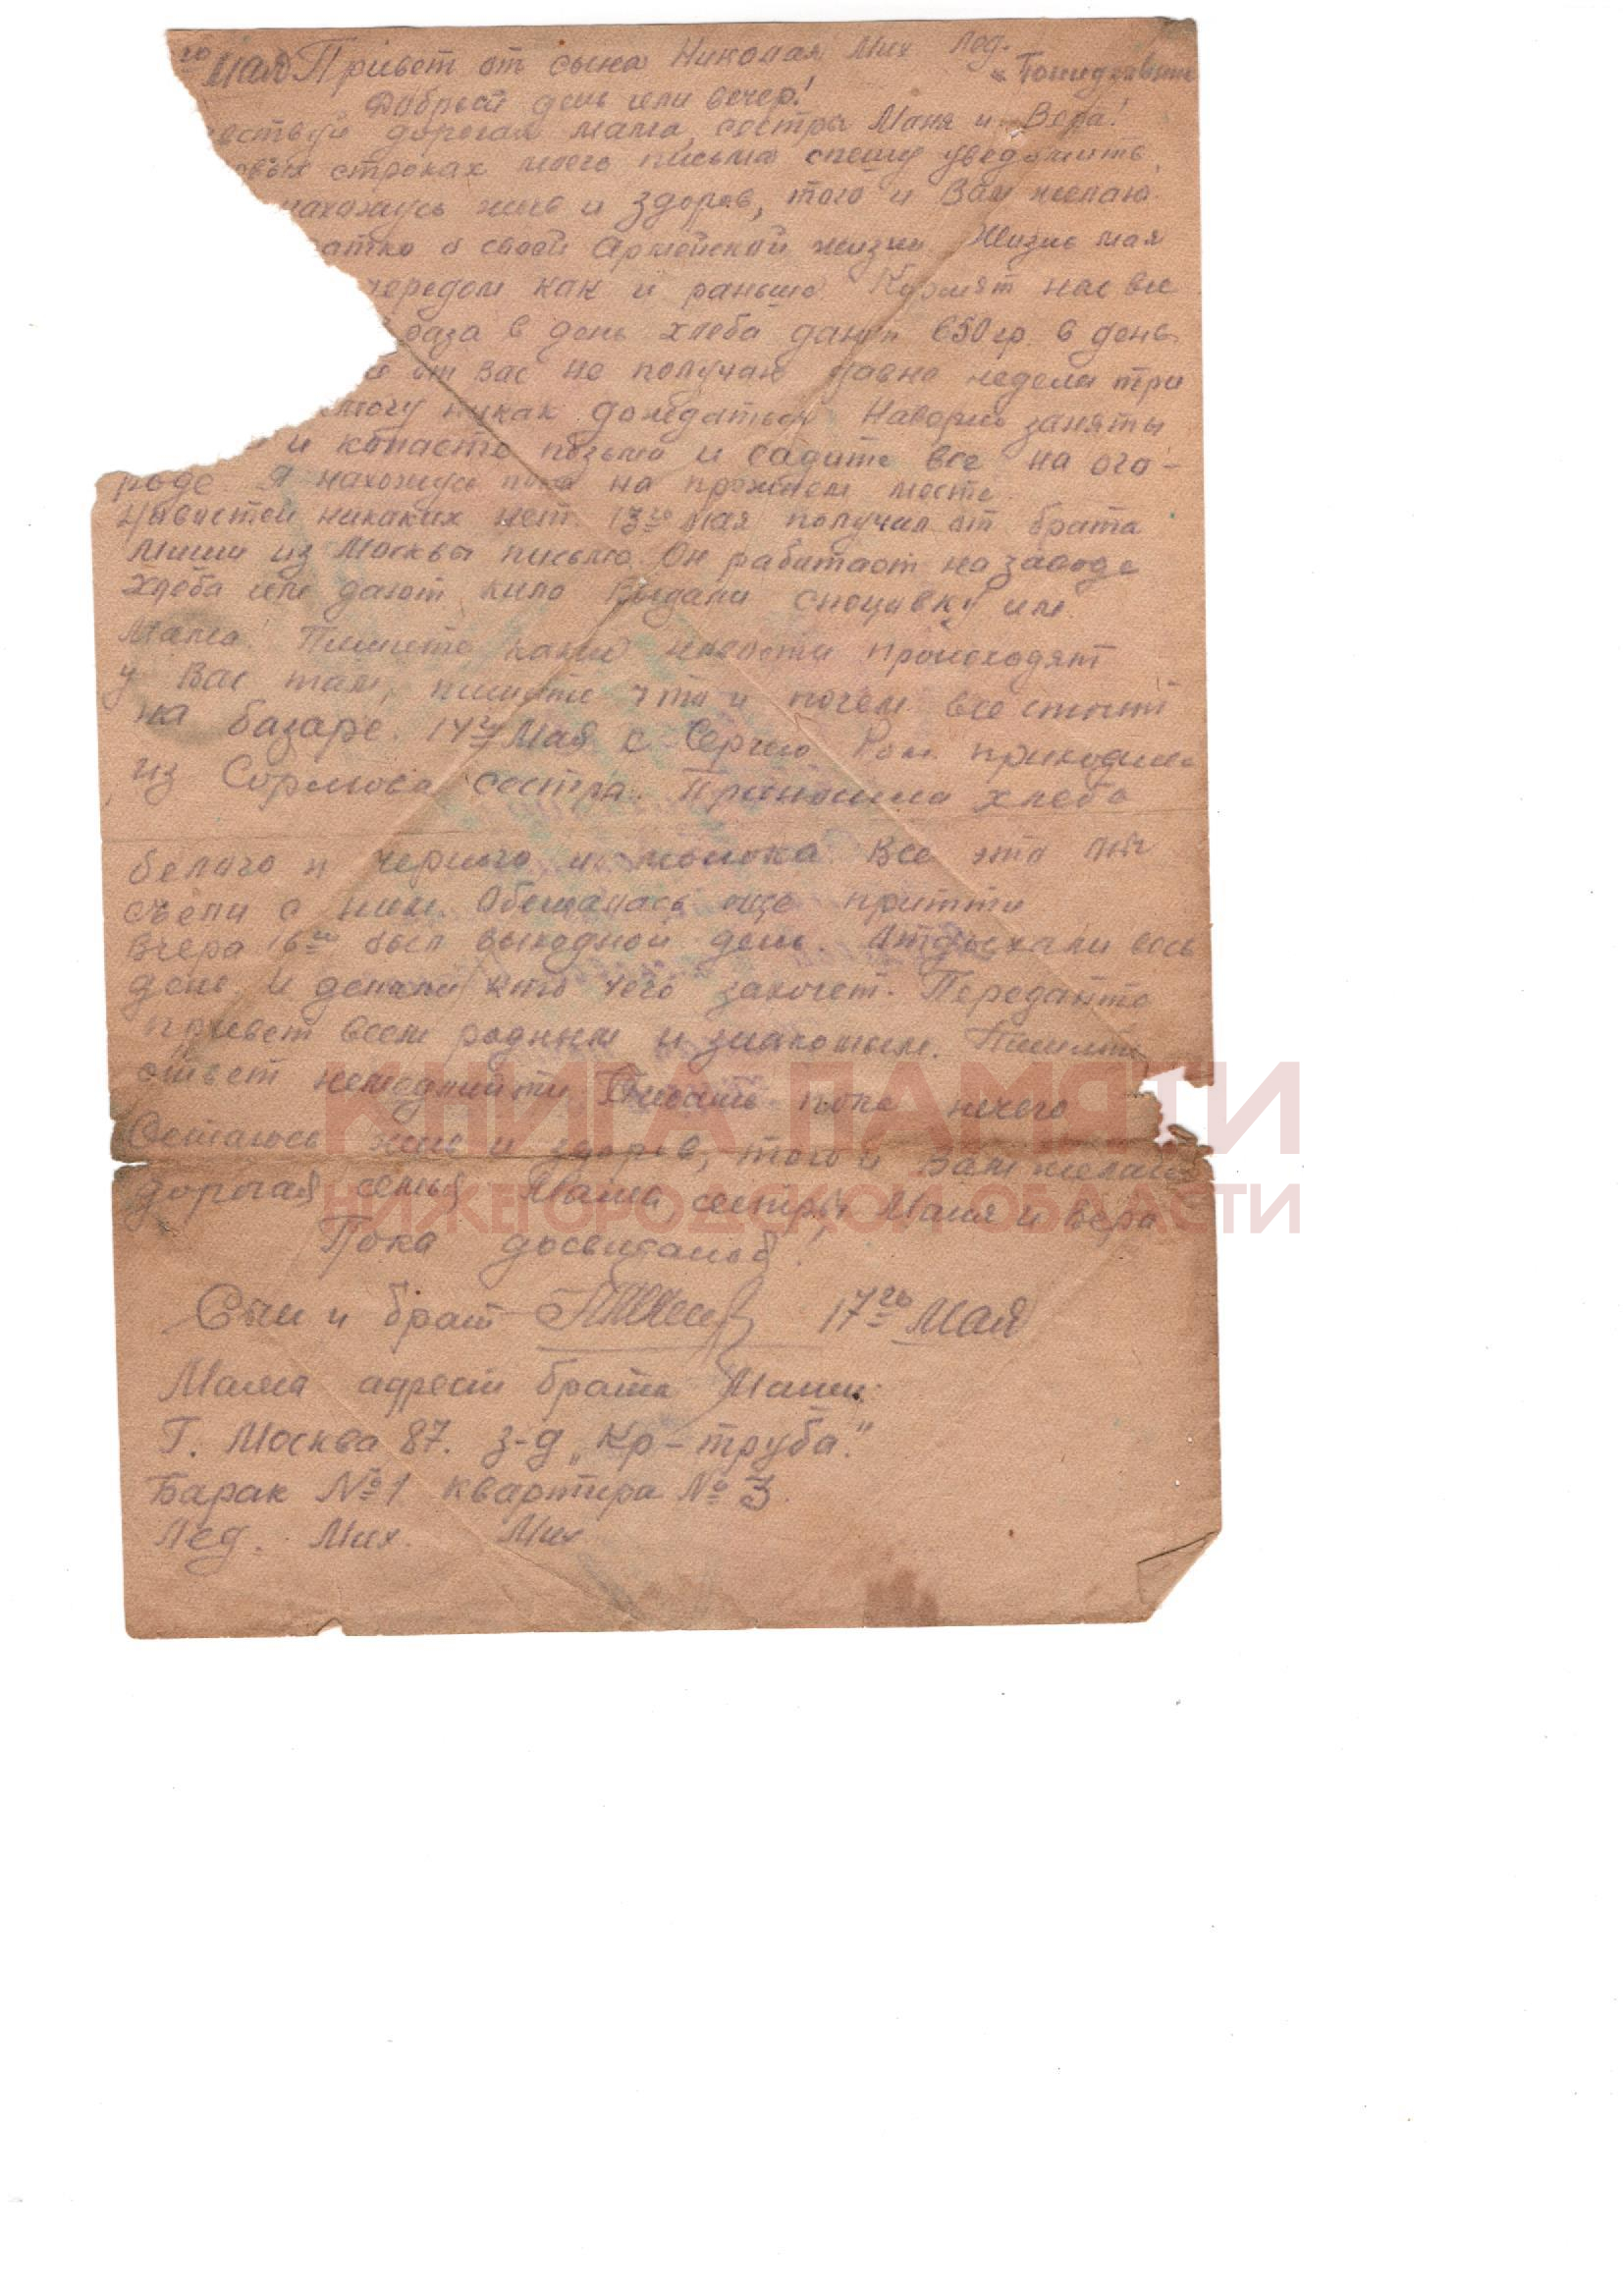 го Мая Привет от сына Николая Мих Лед.
Добрый день или вечер!
ствуй дорогая мама, сестры Маня и Вера!
овых строках моего письма спешу уведомить
нахожусь жив и здоров, того и Вам желаю.
ратко о своей Армейской жизни. Жизнь мая
чередом как и раньше Кормят нас все
база в день хлеба дают 650 гр. в день
от Вас не получаю давно недели три
могу никак дождаться Наверно заняты
и копаете позьмо и садите все на ого-
роде. Я нахожусь пока на прежнем месте.
Новостей никаких нет. 13го Мая получил от брата
Миши из Москвы письмо. Он работает на заводе
хлеба им дают кило Выдали спецовку им.
Мама Пишите какие новости происходят
у Вас там, пишите что и почем все стоит
на базаре. 14го Мая к Сергею Ром. приходила
из Сормова сестра. Приносила хлеба
белого и черного и молока Все это мы
съели с ним. Обещалась еще притти
Вчера 16го был выходной день. Отдыхали весь
день и делали кто чего захочет. Передайте
привет всем родным и знакомым. Пишите
ответ немедлийти Писать пока нечего
Остаюсь жив и здоров, того и Вам желаю
дорогая семья Мама, сестры Маня и Вера
Пока досвиданья!
Сын и брат 17го Мая
Мама адрест брата Миши:
Г. Москва 87. з-д „Кр-труба."
Барак №1 квартира № 3.
Лед. Мих. Мих
КНИГА ПАМЯТИ
НИЖЕГОРОДСКОЙ ОБЛАСТИ